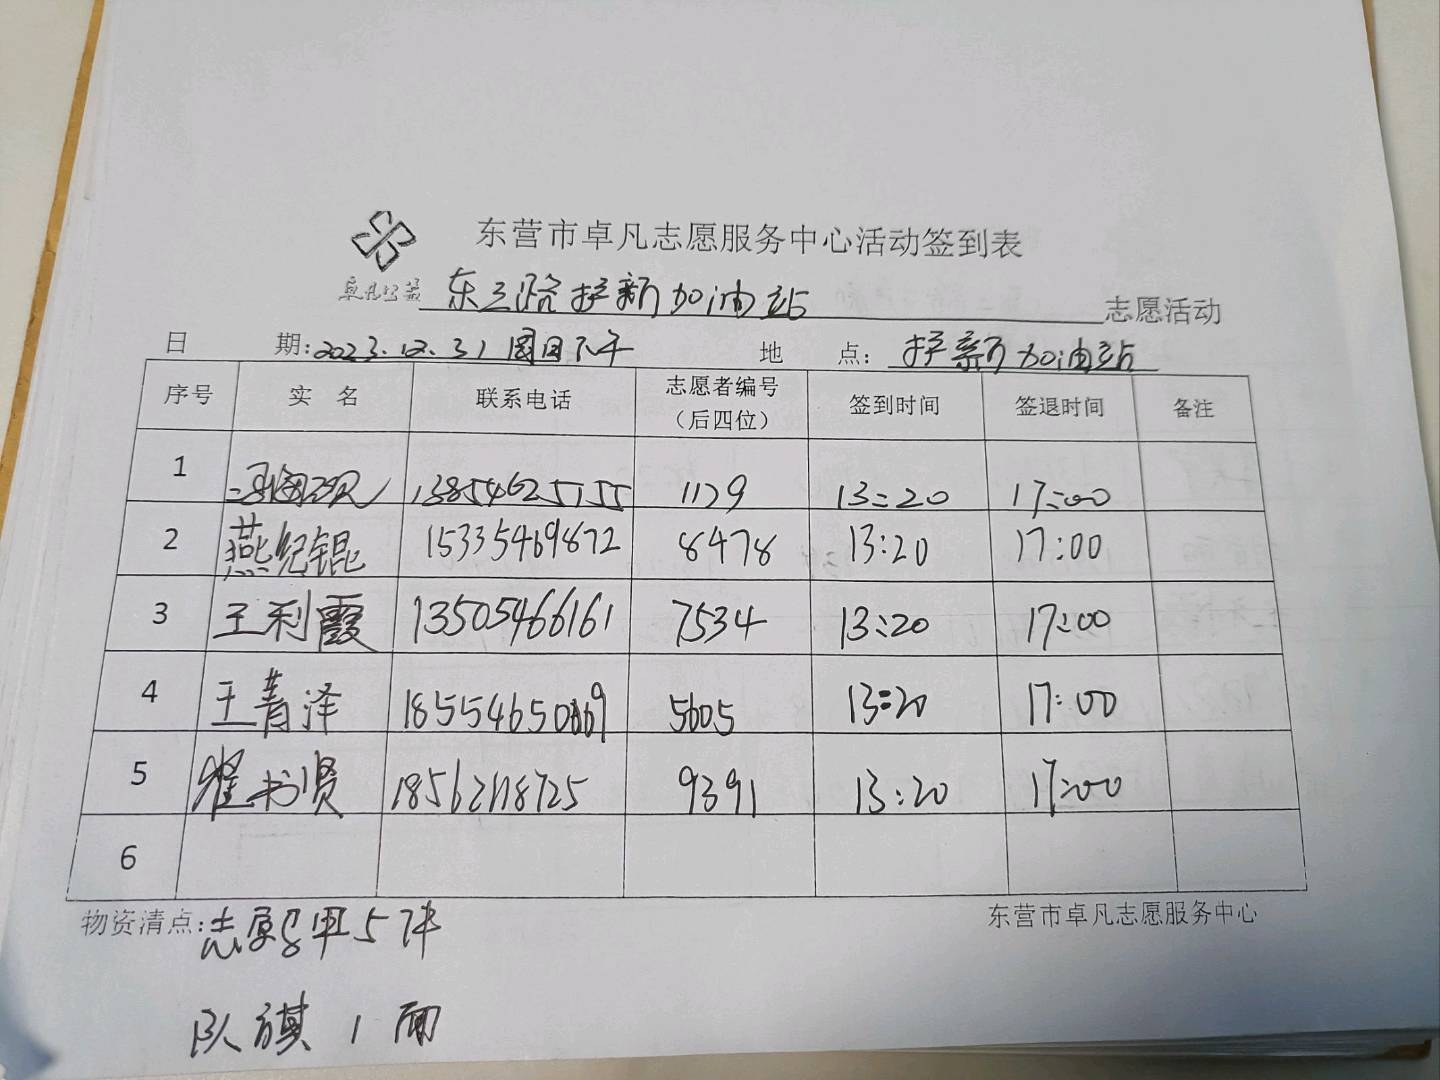 东营市卓凡志愿服务中心活动签到表
卓凡公益 东三路护新加油站 志愿活动
日 期:2023.12.31周日下午 地 点: 护新加油站
序号 实 名 联系电话 志愿者编号（后四位） 签到时间 签退时间 备注
1 13854625155 1129 13:20 17:00
2 燕纪锟 15335469872 8478 13:20 17:00
3 王利霞 13505466161 7534 13:20 17:00
4 王菁泽 5605 13:20 17:00
5 翟书贤 18562118725 9391 13:20 17:00
6
物资清点:志愿马甲5件 东营市卓凡志愿服务中心
队旗1面